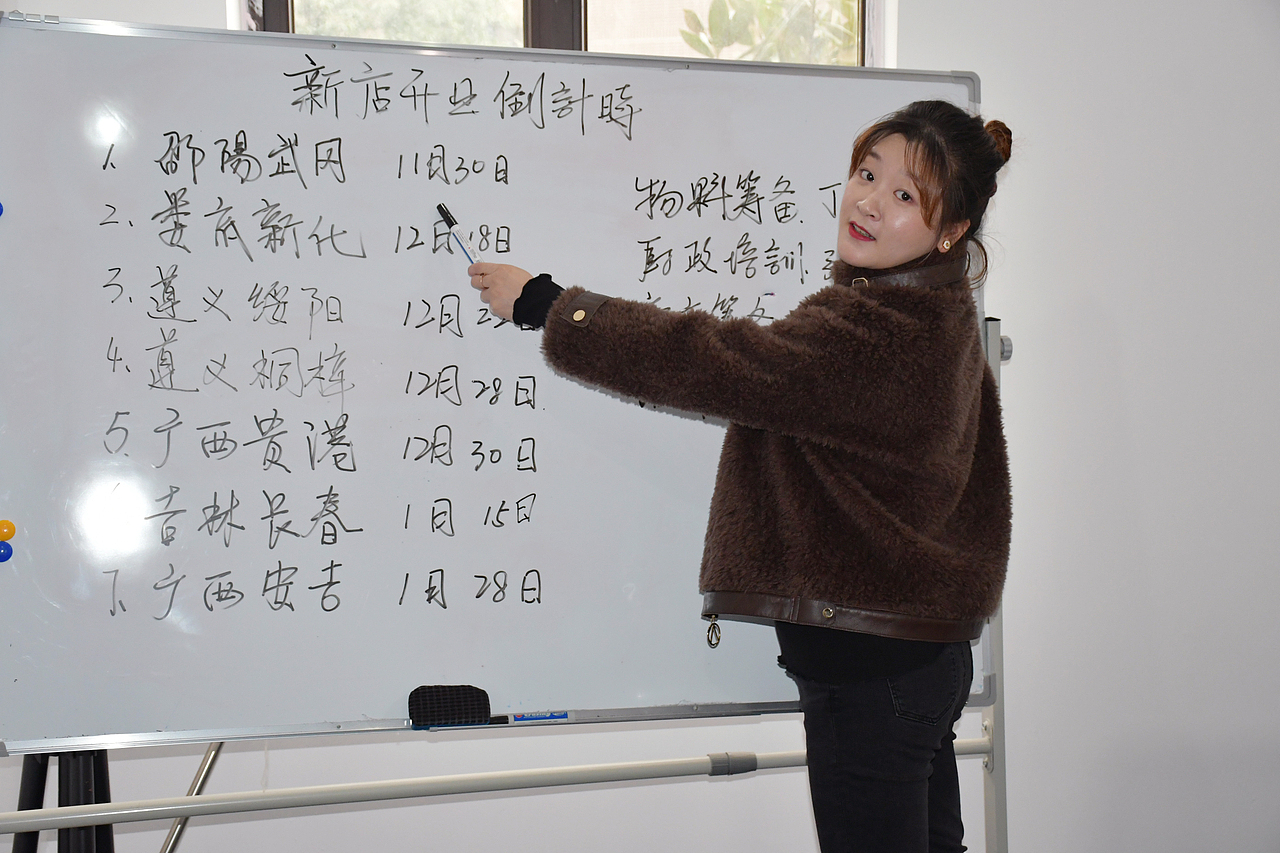 新店开业倒計時
1. 邵陽武冈 11月30日
2. 娄底新化 12月18日
3. 遵义绥阳 12月2
4. 遵义桐梓 12月28日
5. 广西贵港 12月30日
吉林长春 1月15日
7. 广西安吉 1月28日
物料筹备
财政培訓